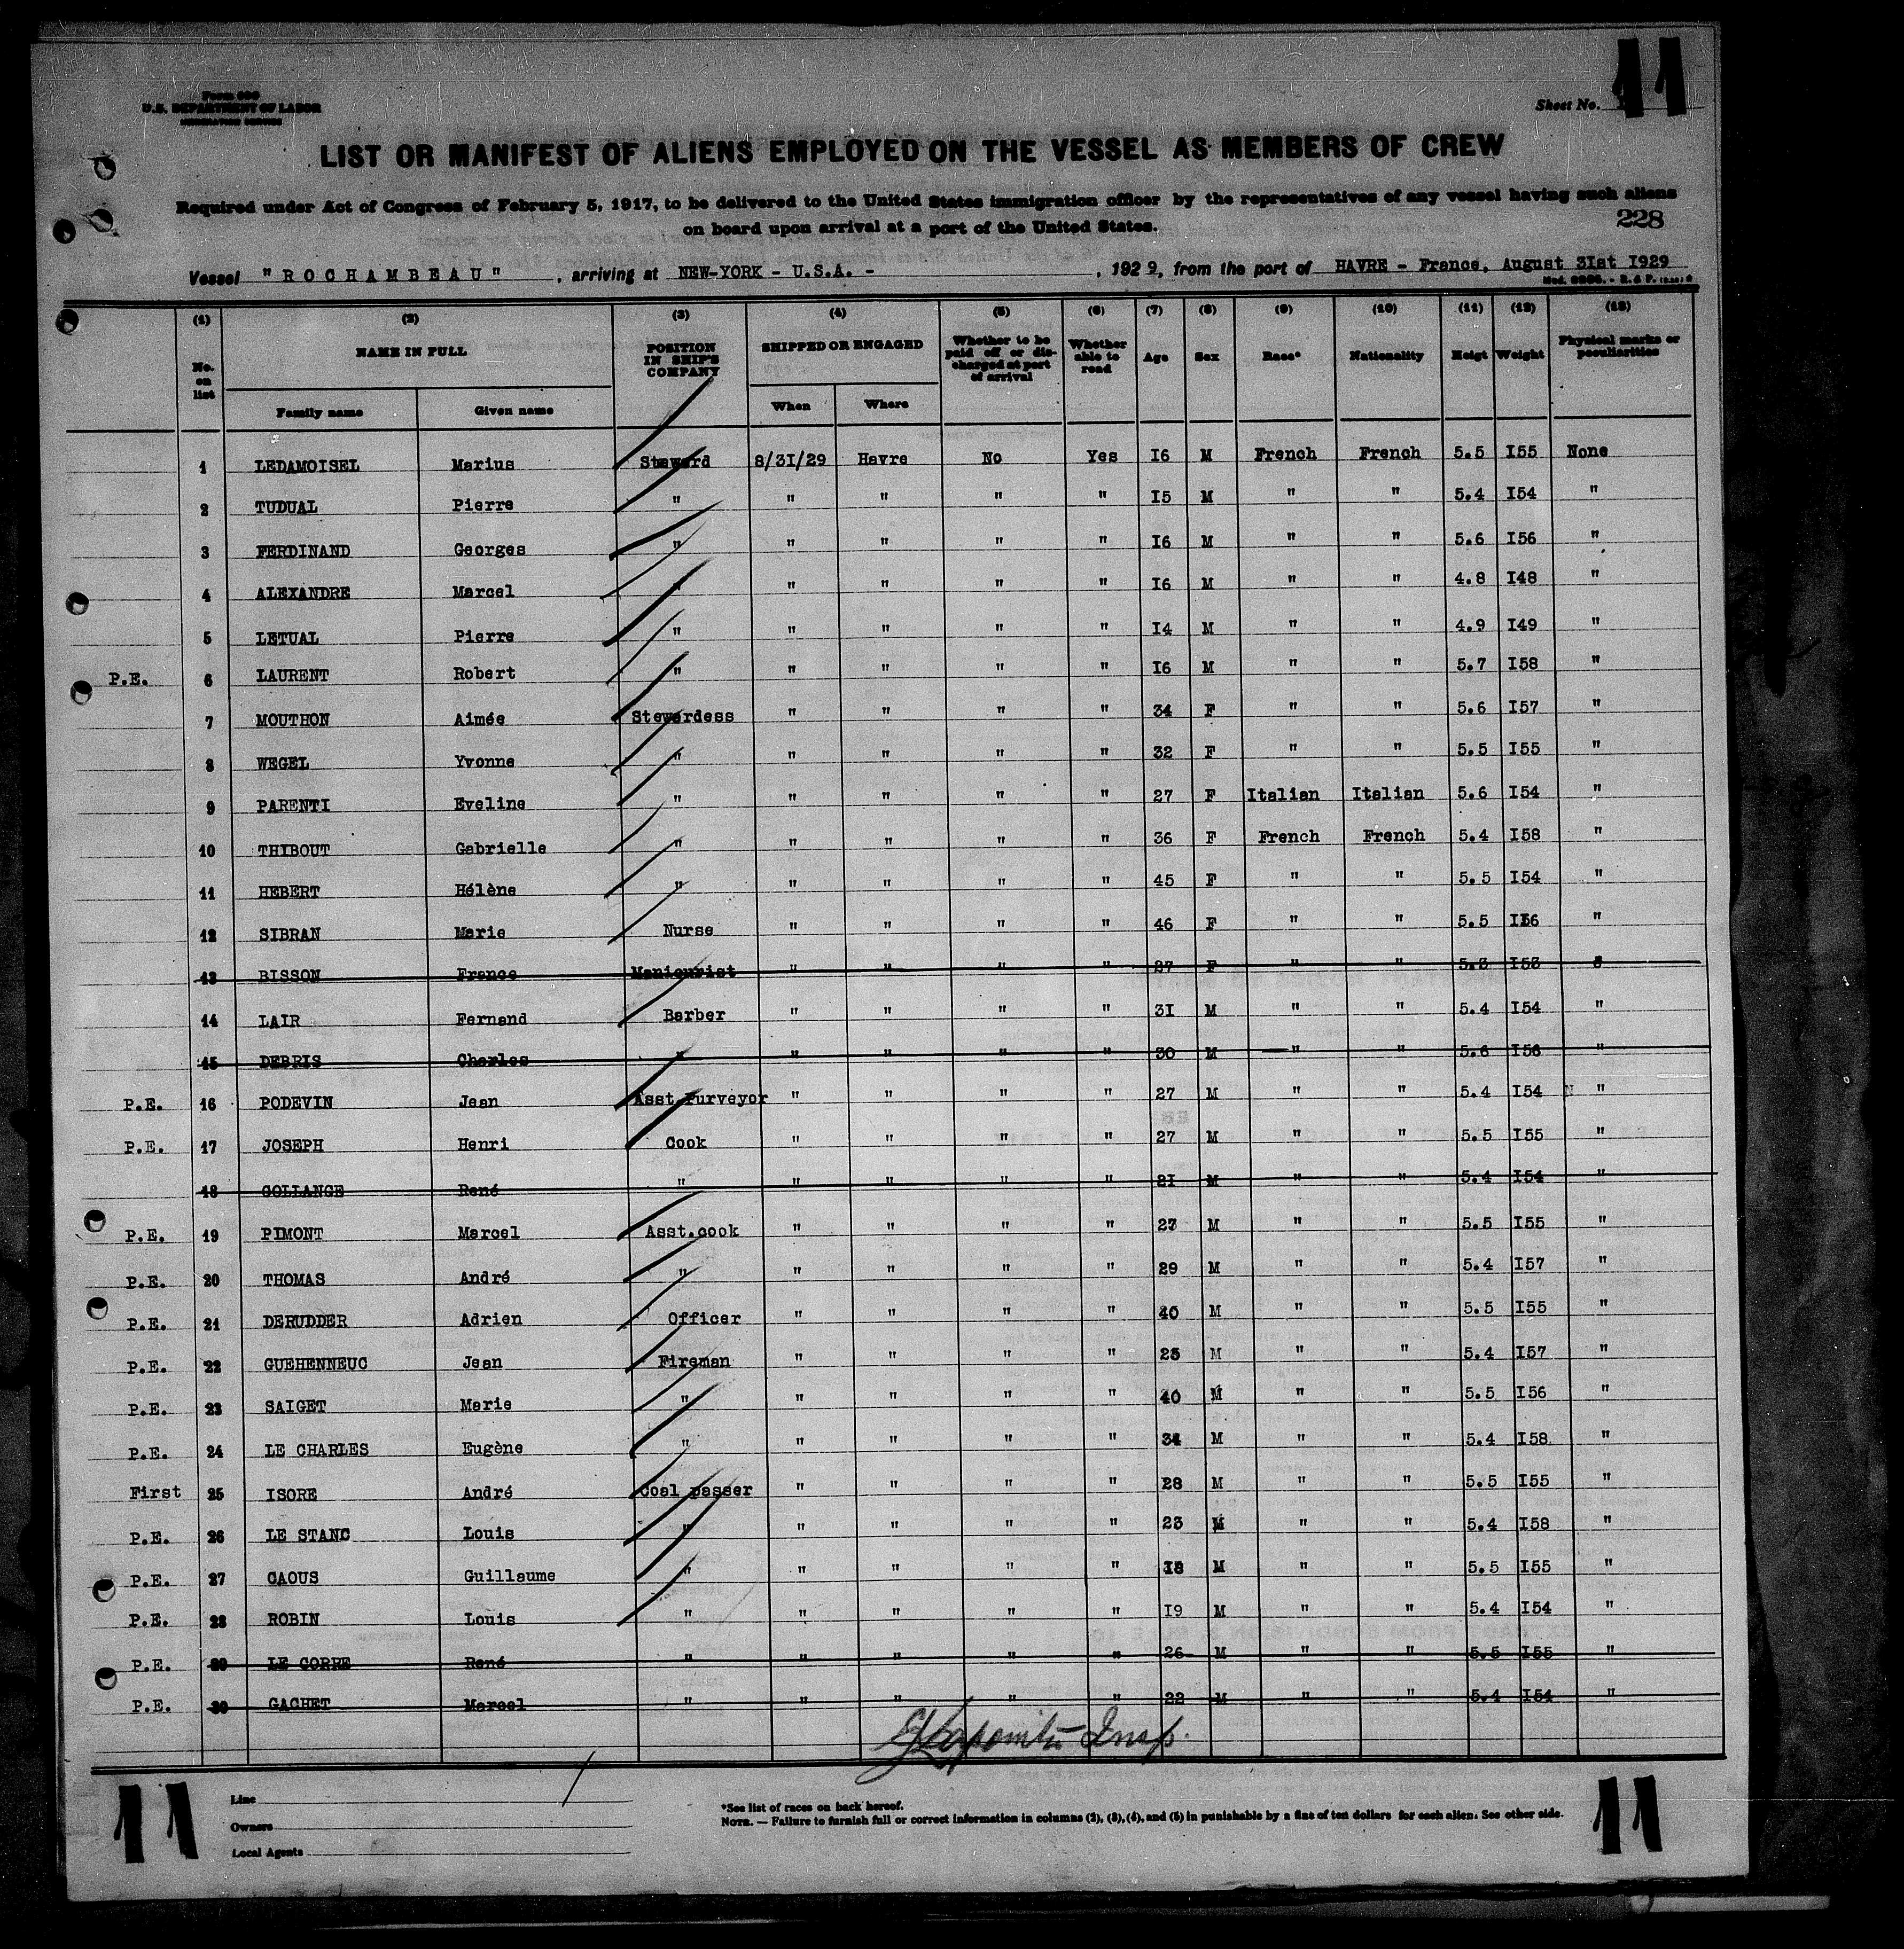 11
Form 686
U.S. DEPARTMENT OF LABOR
IMMIGRATION SERVICE
Sheet No.
LIST OR MANIFEST OF ALIENS EMPLOYED ON THE VESSEL AS MEMBERS OF CREW
Required under Act of Congress of February 5, 1917, to be delivered to the United States immigration officer by the representatives of any vessel having such aliens
on board upon arrival at a port of the United States.
228
Vessel "ROCHAMBEAU", arriving at NEW-YORK - U.S.A. - , 1929, from the port of HAVRE - France, August 3Ist I929
(1) (2) (3) (4) (5) (6) (7) (8) (9) (10) (11) (12) (13)
No. on list NAME IN FULL POSITION IN SHIP'S COMPANY SHIPPED OR ENGAGED Whether to be paid off or discharged at port of arrival Whether able to read Age Sex Race* Nationality Heigt Weight Physical marks or peculiarities
Family name Given name When Where
1 LEDAMOISEL Marius Steward 8/3I/29 Havre No Yes I6 M French French 5.5 I55 None
2 TUDUAL Pierre " " " " " I5 M " " 5.4 I54 "
3 FERDINAND Georges " " " " " I6 M " " 5.6 I56 "
4 ALEXANDRE Marcel " " " " " I6 M " " 4.8 I48 "
5 LETUAL Pierre " " " " " I4 M " " 4.9 I49 "
P.E. 6 LAURENT Robert " " " " " I6 M " " 5.7 I58 "
7 MOUTHON Aimée Stewardess " " " " 34 F " " 5.6 I57 "
8 WEGEL Yvonne " " " " " 32 F " " 5.5 I55 "
9 PARENTI Eveline " " " " " 27 F Italian Italian 5.6 I54 "
10 THIBOUT Gabrielle " " " " " 36 F French French 5.4 I58 "
11 HEBERT Hélène " " " " " 45 F " " 5.5 I54 "
12 SIBRAN Marie Nurse " " " " 46 F " " 5.5 I56 "
13 BISSON France Manicurist " " " " 27 F " " 5.3 I53
14 LAIR Fernand Barber " " " " 3I M " " 5.4 I54 "
15 DEBRIS Charles " " " " " 30 M " " 5.6 I56 "
P.E. 16 PODEVIN Jean Asst.Purveyor " " " " 27 M " " 5.4 I54 "
P.E. 17 JOSEPH Henri Cook " " " " 27 M " " 5.5 I55 "
18 COLLANGE René " " " " " 2I M " " 5.4 I54 "
P.E. 19 PIMONT Marcel Asst.cook " " " " 27 M " " 5.5 I55 "
P.E. 20 THOMAS André " " " " " 29 M " " 5.4 I57 "
P.E. 21 DERUDDER Adrien Officer " " " " 40 M " " 5.5 I55 "
P.E. 22 GUEHENNEUC Jean Fireman " " " " 25 M " " 5.4 I57 "
P.E. 23 SAIGET Marie " " " " " 40 M " " 5.5 I56 "
P.E. 24 LE CHARLES Eugène " " " " " 34 M " " 5.4 I58 "
First 25 ISORE André Coal passer " " " " 28 M " " 5.5 I55 "
P.E. 26 LE STANC Louis " " " " " 23 M " " 5.4 I58 "
P.E. 27 CAOUS Guillaume " " " " " I8 M " " 5.5 I55 "
P.E. 28 ROBIN Louis " " " " " I9 M " " 5.4 I54 "
P.E. 29 LE CORRE René " " " " " 26 M " " 5.5 I55 "
P.E. 30 GACHET Marcel " " " " " 22 M " " 5.4 I54 "
Insp.
Line
Owners
Local Agents
*See list of races on back hereof.
NOTE. — Failure to furnish full or correct information in columns (2), (3), (4), and (5) in punishable by a fine of ten dollars for each alien. See other side.
11
11